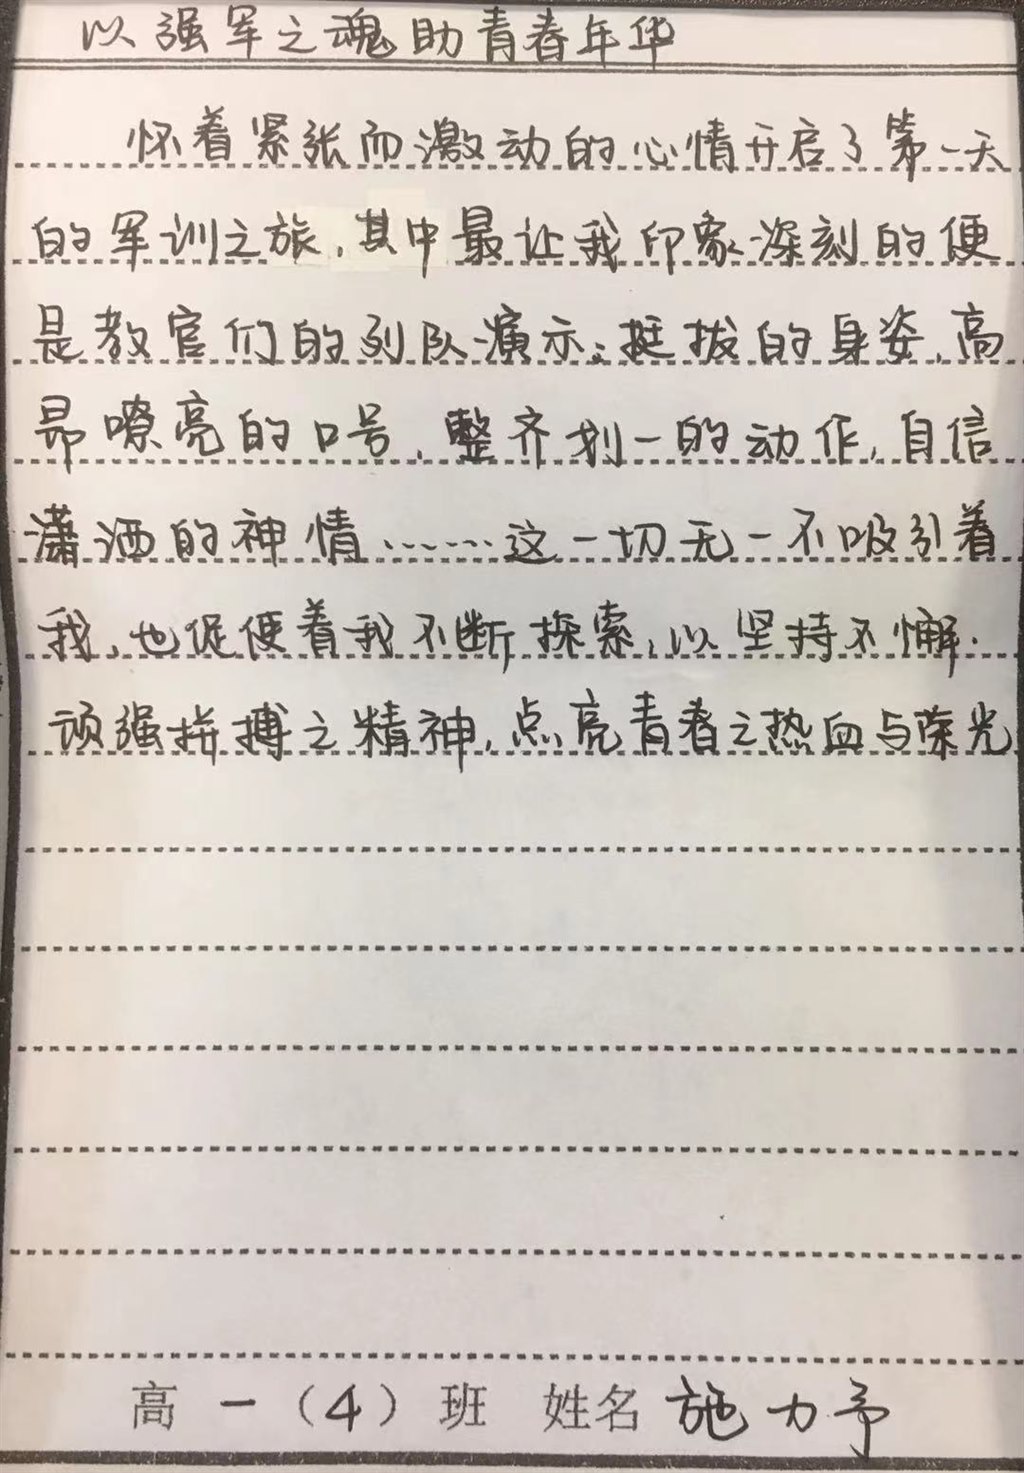 以强军之魂助青春年华
怀着紧张而激动的心情开启了第一天
的军训之旅，其中最让我印象深刻的便
是教官们的列队演示：挺拔的身姿，高
昂嘹亮的口号，整齐划一的动作，自信
潇洒的神情……这一切无一不吸引着
我，也促使着我不断探索，以坚持不懈、
顽强拼搏之精神，点亮青春之热血与荣光
高一（4）班 姓名 施力予